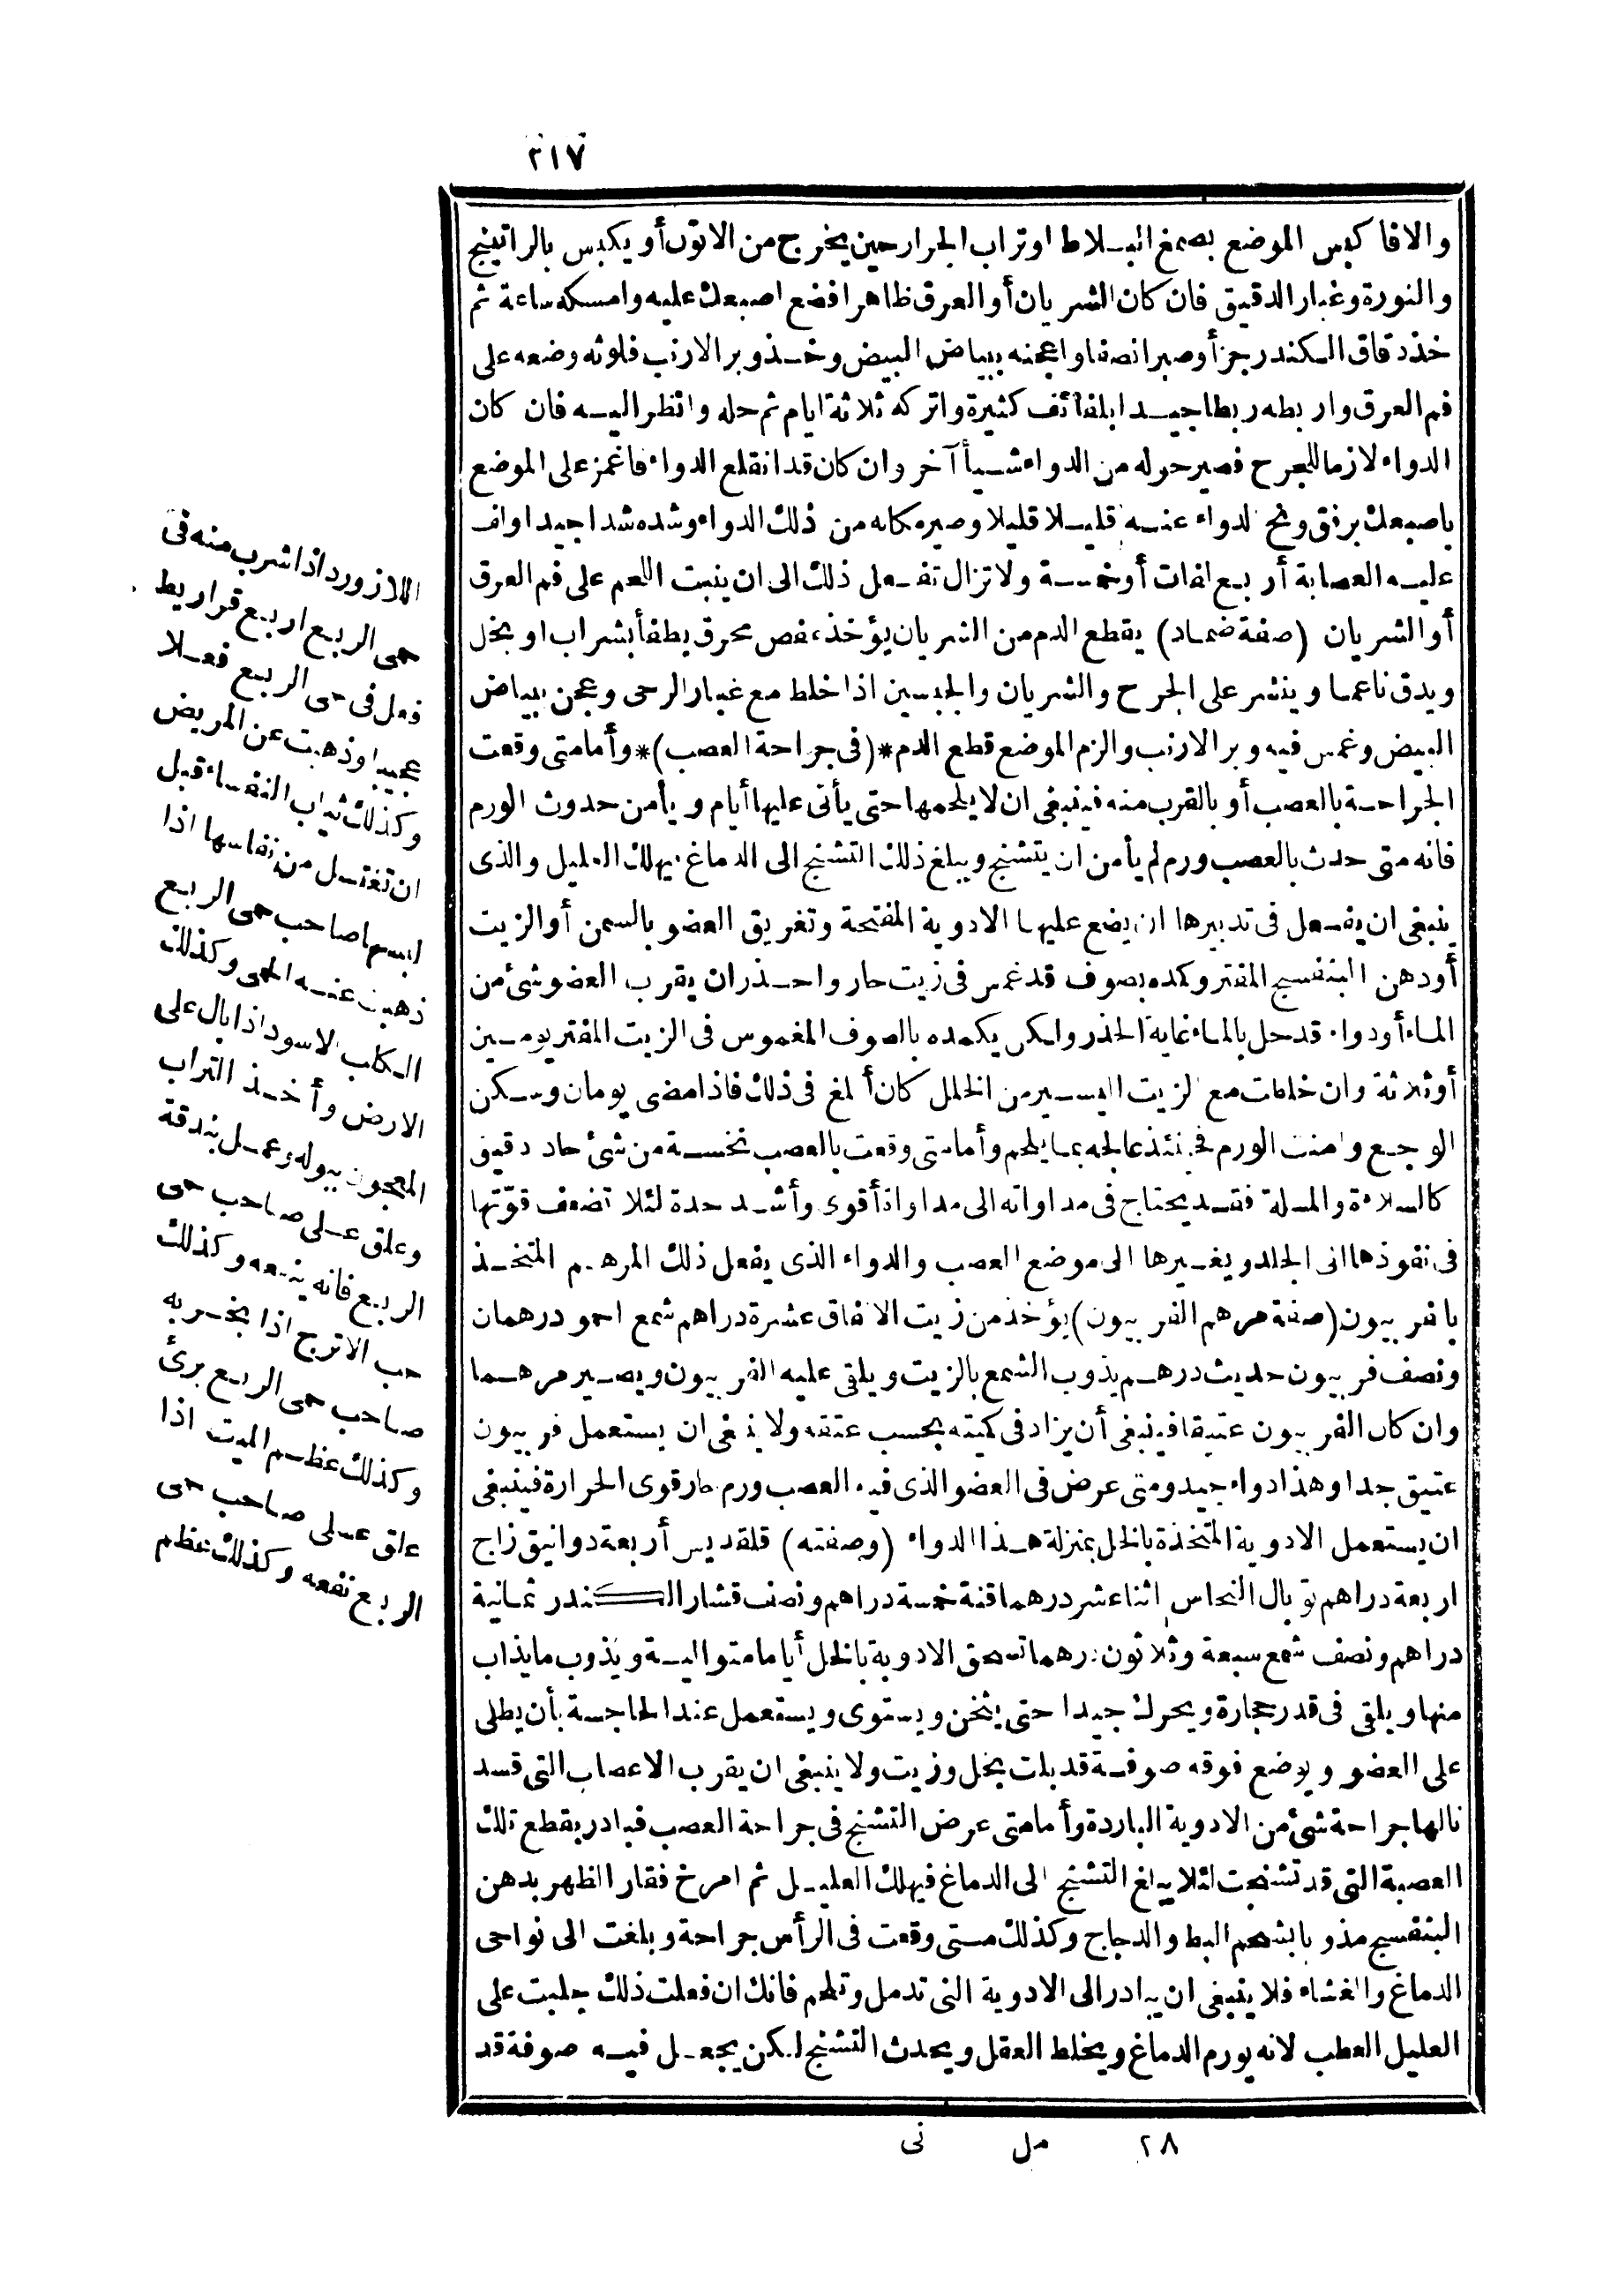 ٢١٧
والا فاكبس الموضع بصمغ البلاط او تراب الجرار حين يخرج من الاتون أو يكبس بالراتينج
والنورة وغبار الدقيق فان كان الشريان أو العرق ظاهرا فضع اصبعك عليه وامسكه ساعة ثم
خذ دقاق الكندر جزأ وصبرا نصفا واعجنه ببياض البيض وخذ وبر الارنب فلوثه وضعه على
فم العرق واربطه ربطا جيدا بلفائف كثيرة واتركه ثلاثة ايام ثم حله وانظر اليه فان كان
الدواء لازما للجرح فصير حوله من الدواء شيأ آخر وان كان قد انقلع الدواء فاغمز على الموضع
باصبعك برفق ونح الدواء عنه قليلا قليلا وصير مكانه من ذلك الدواء وشده شدا جيدا ولف
عليه العصابة أربع لفات أو خمسة ولا تزال تفعل ذلك الى ان ينبت اللحم على فم العرق
أو الشريان (صفة ضماد) يقطع الدم من الشريان يؤخذ عفص محرق يطفأ بشراب او بخل
ويدق ناعما وينثر على الجرح والشريان والجبسين اذا خلط مع غبار الرحى وعجن ببياض
البيض وغمس فيه وبر الارنب والزم الموضع قطع الدم *(فى جراحة العصب)* وأما متى وقعت
الجراحة بالعصب أو بالقرب منه فينبغى ان لا يلحمها حتى يأتى عليها أيام ويأمن حدوث الورم
فانه متى حدث بالعصب ورم لم يأمن ان يتشنج ويبلغ ذلك التشنج الى الدماغ فيهلك العليل والذى
ينبغى ان يفعل فى تدبيرها ان يضع عليها الادوية المفتحة وتغريق العضو بالسمن أو الزيت
أو دهن البنفسج المفتر وكمده بصوف قد غمس فى زيت حار واحذر ان يقرب العضو شئ من
الماء أو دواء قد حل بالماء غاية الحذر ولكن يكمده بالصوف المغموس فى الزيت المفتر يومين
أو ثلاثة وان خلطت مع الزيت اليسير من الخل كان أبلغ فى ذلك فاذا مضى يومان وسكن
الوجع وامنت الورم فحينئذ عالجه بما يلحم وأما متى وقعت بالعصب نخسة من شئ حاد دقيق
كالسلاءة والمسلة فقد يحتاج فى مداواته الى مداواة أقوى وأشد حدة لئلا تضعف قوّتها
فى نفوذها فى الجلد وغيرها الى موضع العصب والدواء الذى يفعل ذلك المرهم المتخذ
بافربيون (صفة مرهم الفربيون) يؤخذ من زيت الانفاق عشرة دراهم شمع احمر درهمان
ونصف فربيون حديث درهم يذوب الشمع بالزيت ويلقى عليه الفربيون ويصير مرهما
وان كان الفربيون عتيقا فينبغى أن يزاد فى كميته بحسب عتقه ولا ينبغى ان يستعمل فربيون
عتيق جدا وهذا دواء جيد ومتى عرض فى العضو الذى فيه العصب ورم حار قوى الحرارة فينبغى
ان يستعمل الادوية المتخذة بالخل بمنزلة هذا الدواء (وصفته) قلقديس أربعة دوانيق زاج
اربعة دراهم توبال النحاس اثنا عشر درهما قنة خمسة دراهم ونصف قشار الكندر ثمانية
دراهم ونصف شمع سبعة وثلاثون درهما تسحق الادوية بالخل أياما متوالية ويذوب ما يذاب
منها ويلقى فى قدر حجارة ويحرك جيدا حتى يثخن ويستوى ويستعمل عند الحاجة بأن يطلى
على العضو ويوضع فوقه صوفة قد بلت بخل وزيت ولا ينبغى ان يقرب الاعصاب التى قد
نالها جراحة شئ من الادوية الباردة وأما متى عرض التشنج فى جراحة العصب فبادر بقطع تلك
العصبة التى قد تشنجت لئلا يبلغ التشنج الى الدماغ فيهلك العليل ثم امرخ فقار الظهر بدهن
البنفسج مذوبا بشحم البط والدجاج وكذلك متى وقعت فى الرأس جراحة وبلغت الى نواحى
الدماغ والغشاء فلا ينبغى ان يبادر الى الادوية التى تدمل وتلحم فانك ان فعلت ذلك جلبت على
العليل العطب لانه يورم الدماغ ويخلط العقل ويحدث التشنج لكن يجعل فيه صوفة قد
اللازورد اذا شرب منه فى
حمى الربع اربع قراريط
فعل فى حمى الربع فعلا
عجيبا وذهبت عن المريض
وكذلك ثياب النفساء قبل
ان تغتسل من نفاسها اذا
لبسها صاحب حمى الربع
ذهبت عنه الحمى وكذلك
الكلب الاسود اذا بال على
الارض وأخذ التراب
المعجون ببوله وعمل بندقة
وعلق على صاحب حمى
الربع فانه ينفعه وكذلك
حب الاترج اذا بخر به
صاحب حمى الربع برئ
وكذلك عظم الميت اذا
علق على صاحب حمى
الربع نفعه وكذلك عظم
٢٨ مل نى